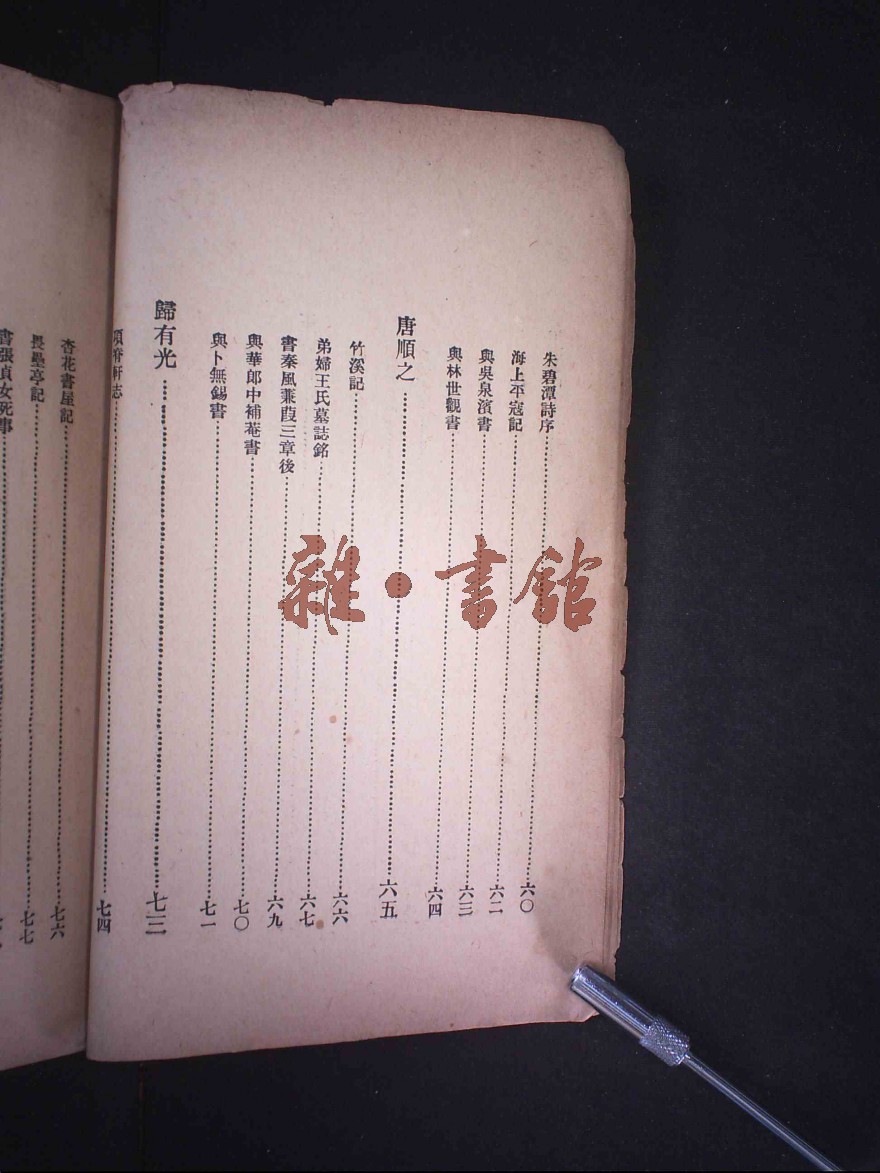 朱碧潭詩序……六〇
海上平寇記……六二
與吳泉濱書……六三
與林世觀書……六四
唐順之……六五
竹溪記……六六
弟婦王氏墓誌銘……六七
書秦風蒹葭三章後……六九
與華郎中補菴書……七〇
與卜無錫書……七一
歸有光……七三
項脊軒志……七四
杏花書屋記……七六
畏壘亭記……七七
書張貞女死事
雜·書館